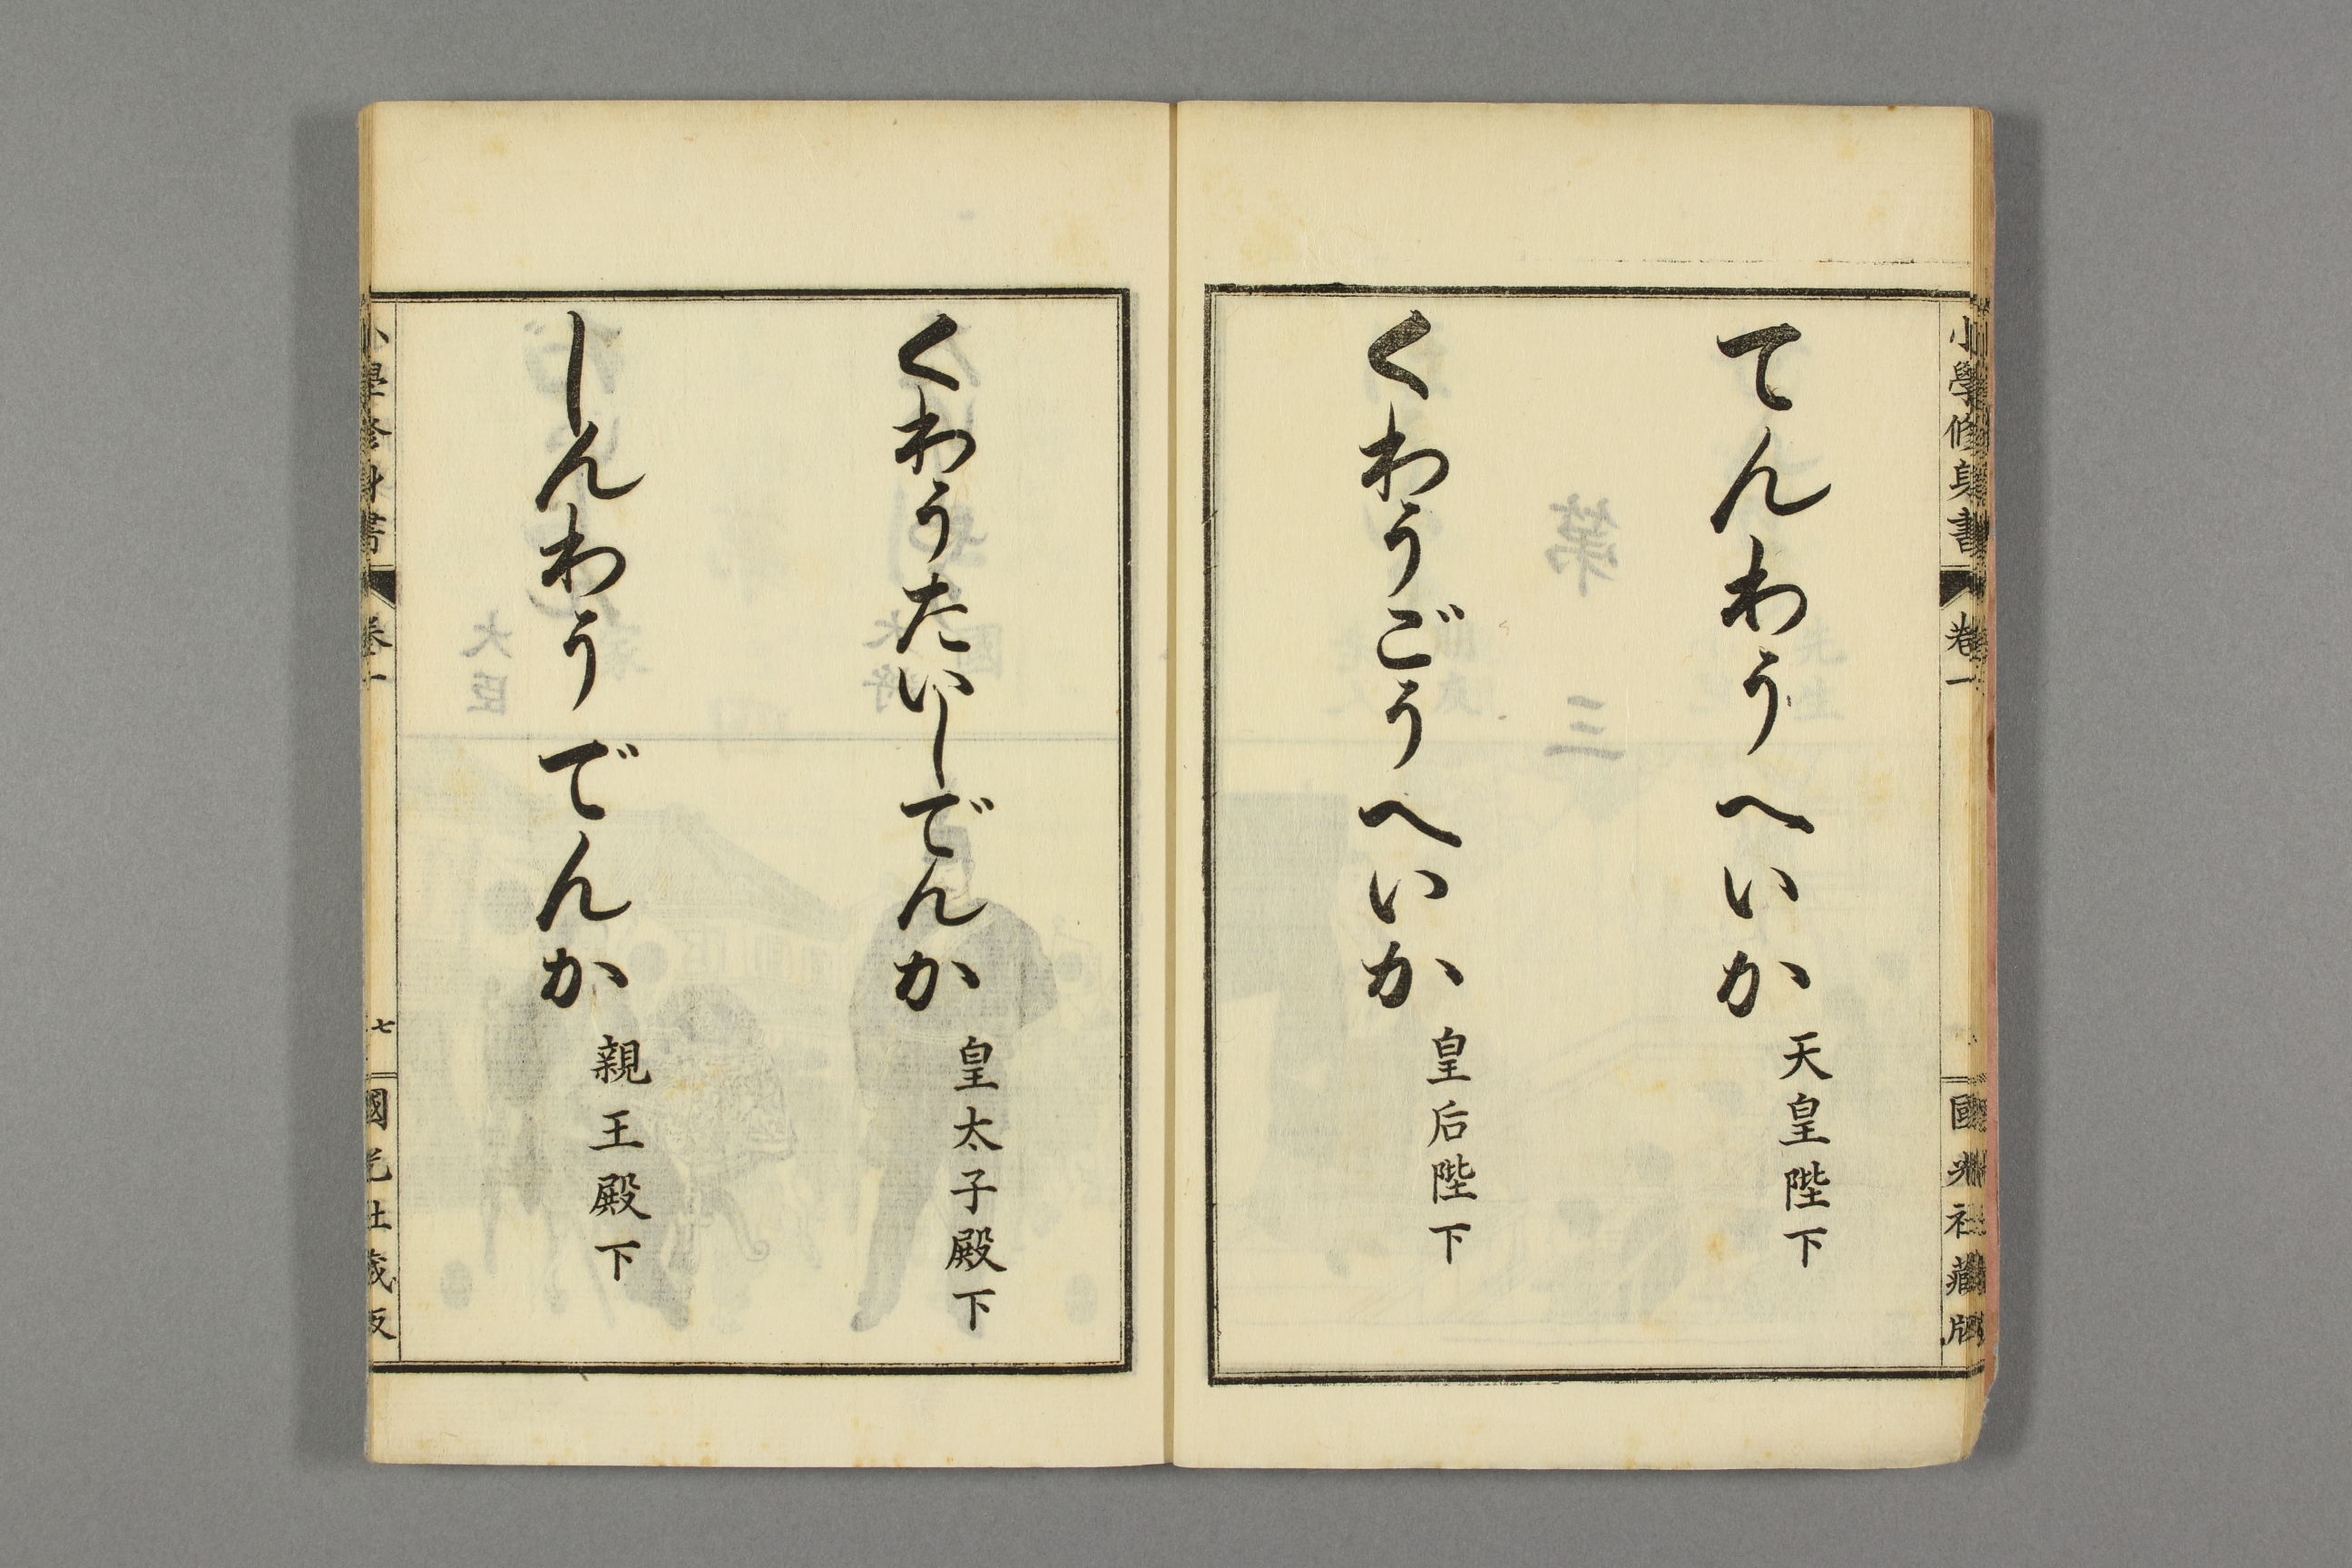 小學修身書 卷一 國光社藏版
てんわうへいか
天皇陛下
くわうごうへいか
皇后陛下
くわうたいしでんか
皇太子殿下
しんわうでんか
親王殿下
小學修身書 卷一 七 國光社藏版